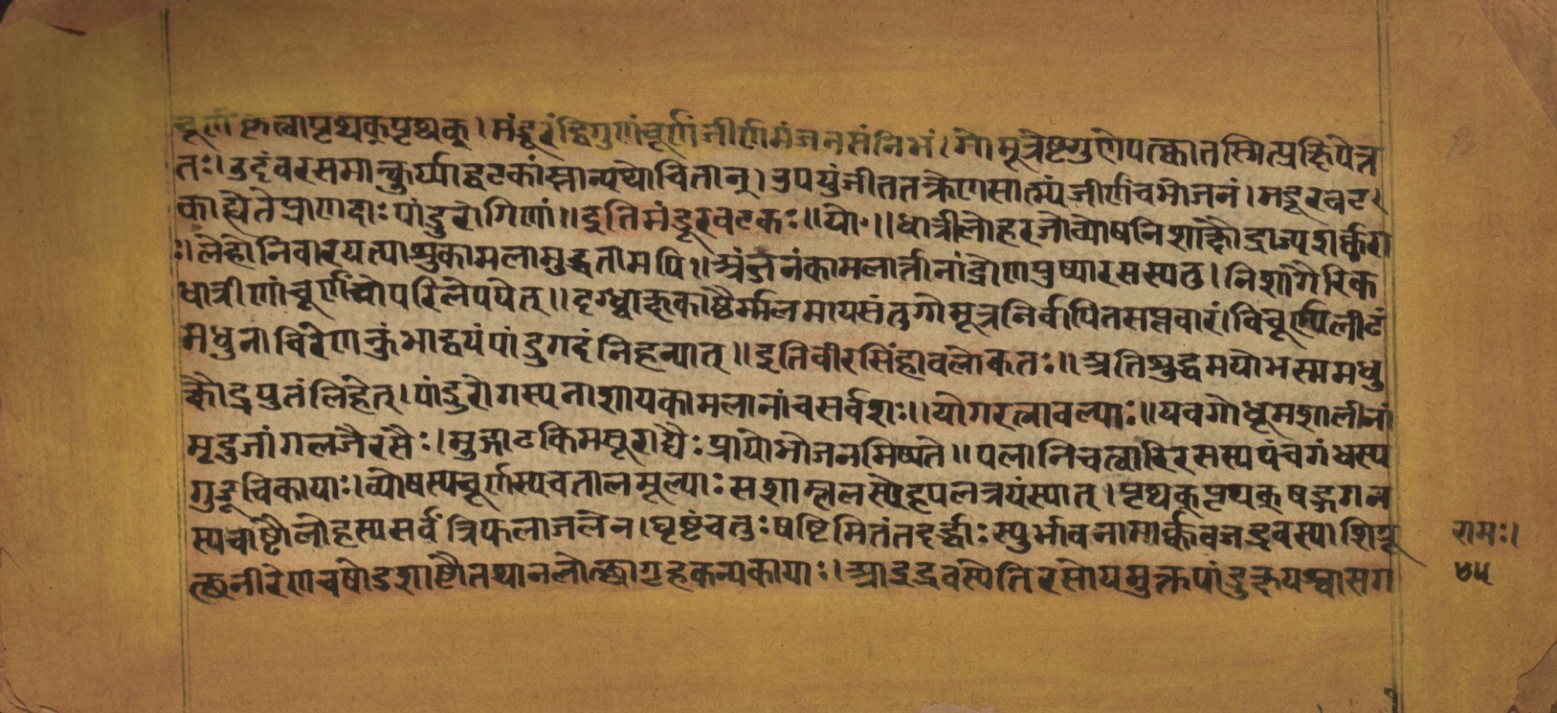 चूर्णं कृत्वापृथक्पृथक्। मंडूरंद्विगुणंचूर्णाज्जीर्णमंजनसंनिभं। गोमूत्रेष्टगुणेपत्क्वातस्मिंत्प्रक्षिपेत्त
तः। उदंबरसमान्कुर्य्याद्वटकांस्तान्यथोचितान्। उपयुंजीततक्रेणसात्म्यंजीर्णेचभोजनं। मडूरवट
काह्येतेप्राणदाः पांडुरोगिणां॥ इतिमंडूरवटकः॥ यो॰॥ धात्रीलोहरजोव्योषनिशाक्षौद्राज्यशर्क्करा
ः। लेहोनिवारयत्याशुकामलामुद्धतामपि॥ अंजनंकामलार्त्तानांद्रोणपुष्यारसस्यतु। निशागैरिक
धात्रीणांचूर्णंचोपरिलेपयेत्॥ दग्ध्वाक्षकाष्ठैर्मलमायसंतुगोमूत्रनिर्वापितसप्तवारं। विचूर्ण्यलीटं
मधुनाचिरेणकुंभाद्वयंपांडुगदंनिहन्यात्॥ इतिवीरसिंहावलोकतः॥ अतिशुद्धमयोभस्ममधु
क्षौद्रयुतंलिहेत्। पांडुरोगस्यनाशायकामलानांचसर्वशः॥ योगरत्नावल्याः॥ यवगोधूमशालीनां
मृदुजांगलजैरसैः। मुद्गाटकिमसूराद्यैः प्रायोभोजनमिष्यते॥ पलानिचत्वारिरसस्यपंचगंधस्य
गुडूचिकायाः। व्योषस्यचूर्णस्यचतालमूल्याः सशाल्मलस्येहपलत्रयंस्यात्। पृथक्पृथक्षड्गगन
स्यचाष्टौलोहस्यसर्वंत्रिफलाजलेन। घृष्टंचतुःषष्टिमितंतदर्द्धाः स्युर्भावनामार्क्कवजद्रवस्य। शिग्रू
त्थनीरेणचषोडशाष्टौतथानलोत्थागृहकन्यकायाः। आर्द्रद्रवस्येतिरसोयमुक्तपांडुक्षयश्वासग
रामः।
४५